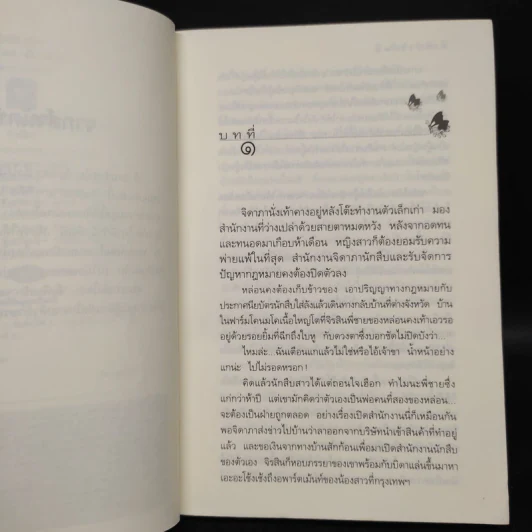 บทที่
๑
จิดาภานั่งเท้าคางอยู่หลังโต๊ะทำงานตัวเล็กเก่า มอง
สำนักงานที่ว่างเปล่าด้วยสายตาหมดหวัง หลังจากอดทน
และทนอดมาเกือบห้าเดือน หญิงสาวก็ต้องยอมรับความ
พ่ายแพ้ในที่สุด สำนักงานจิดาภานักสืบและรับจัดการ
ปัญหากฎหมายคงต้องปิดตัวลง
หล่อนคงต้องเก็บข้าวของ เอาปริญญาทางกฎหมายกับ
ประกาศนียบัตรนักสืบใส่ลังแล้วเดินทางกลับบ้านที่ต่างจังหวัด บ้าน
ในฟาร์มโคนมโคเนื้อใหญ่โตที่จิรสินพี่ชายของหล่อนคงเท้าเอวรอ
อยู่ด้วยรอยยิ้มที่ฉีกถึงใบหู กับดวงตาซึ่งบอกชัดไม่ปิดบังว่า...
ไหมล่ะ...ฉันเตือนแกแล้วไม่ใช่หรือไอ้เจ้าขา น้ำหน้าอย่าง
แกน่ะ ไปไม่รอดหรอก!
คิดแล้วนักสืบสาวได้แต่ถอนใจเฮือก ทำไมนะพี่ชายซึ่ง
แก่กว่าห้าปี แต่เขามักคิดว่าตัวเองเป็นพ่อคนที่สองของหล่อน...
จะต้องเป็นฝ่ายถูกตลอด อย่างเรื่องเปิดสำนักงานนี่ก็เหมือนกัน
พอจิดาภาส่งข่าวไปบ้านว่าลาออกจากบริษัทนำเข้าสินค้าที่ทำอยู่
แล้ว และขอเงินจากทางบ้านสักก้อนเพื่อมาเปิดสำนักงานนักสืบ
ของตัวเอง จิรสินก็หอบภรรยาของเขาพร้อมกับบิดาแล่นขึ้นมาหา
เอะอะโช้งเช้งถึงอพาร์ตเม้นท์ของน้องสาวที่กรุงเทพฯ